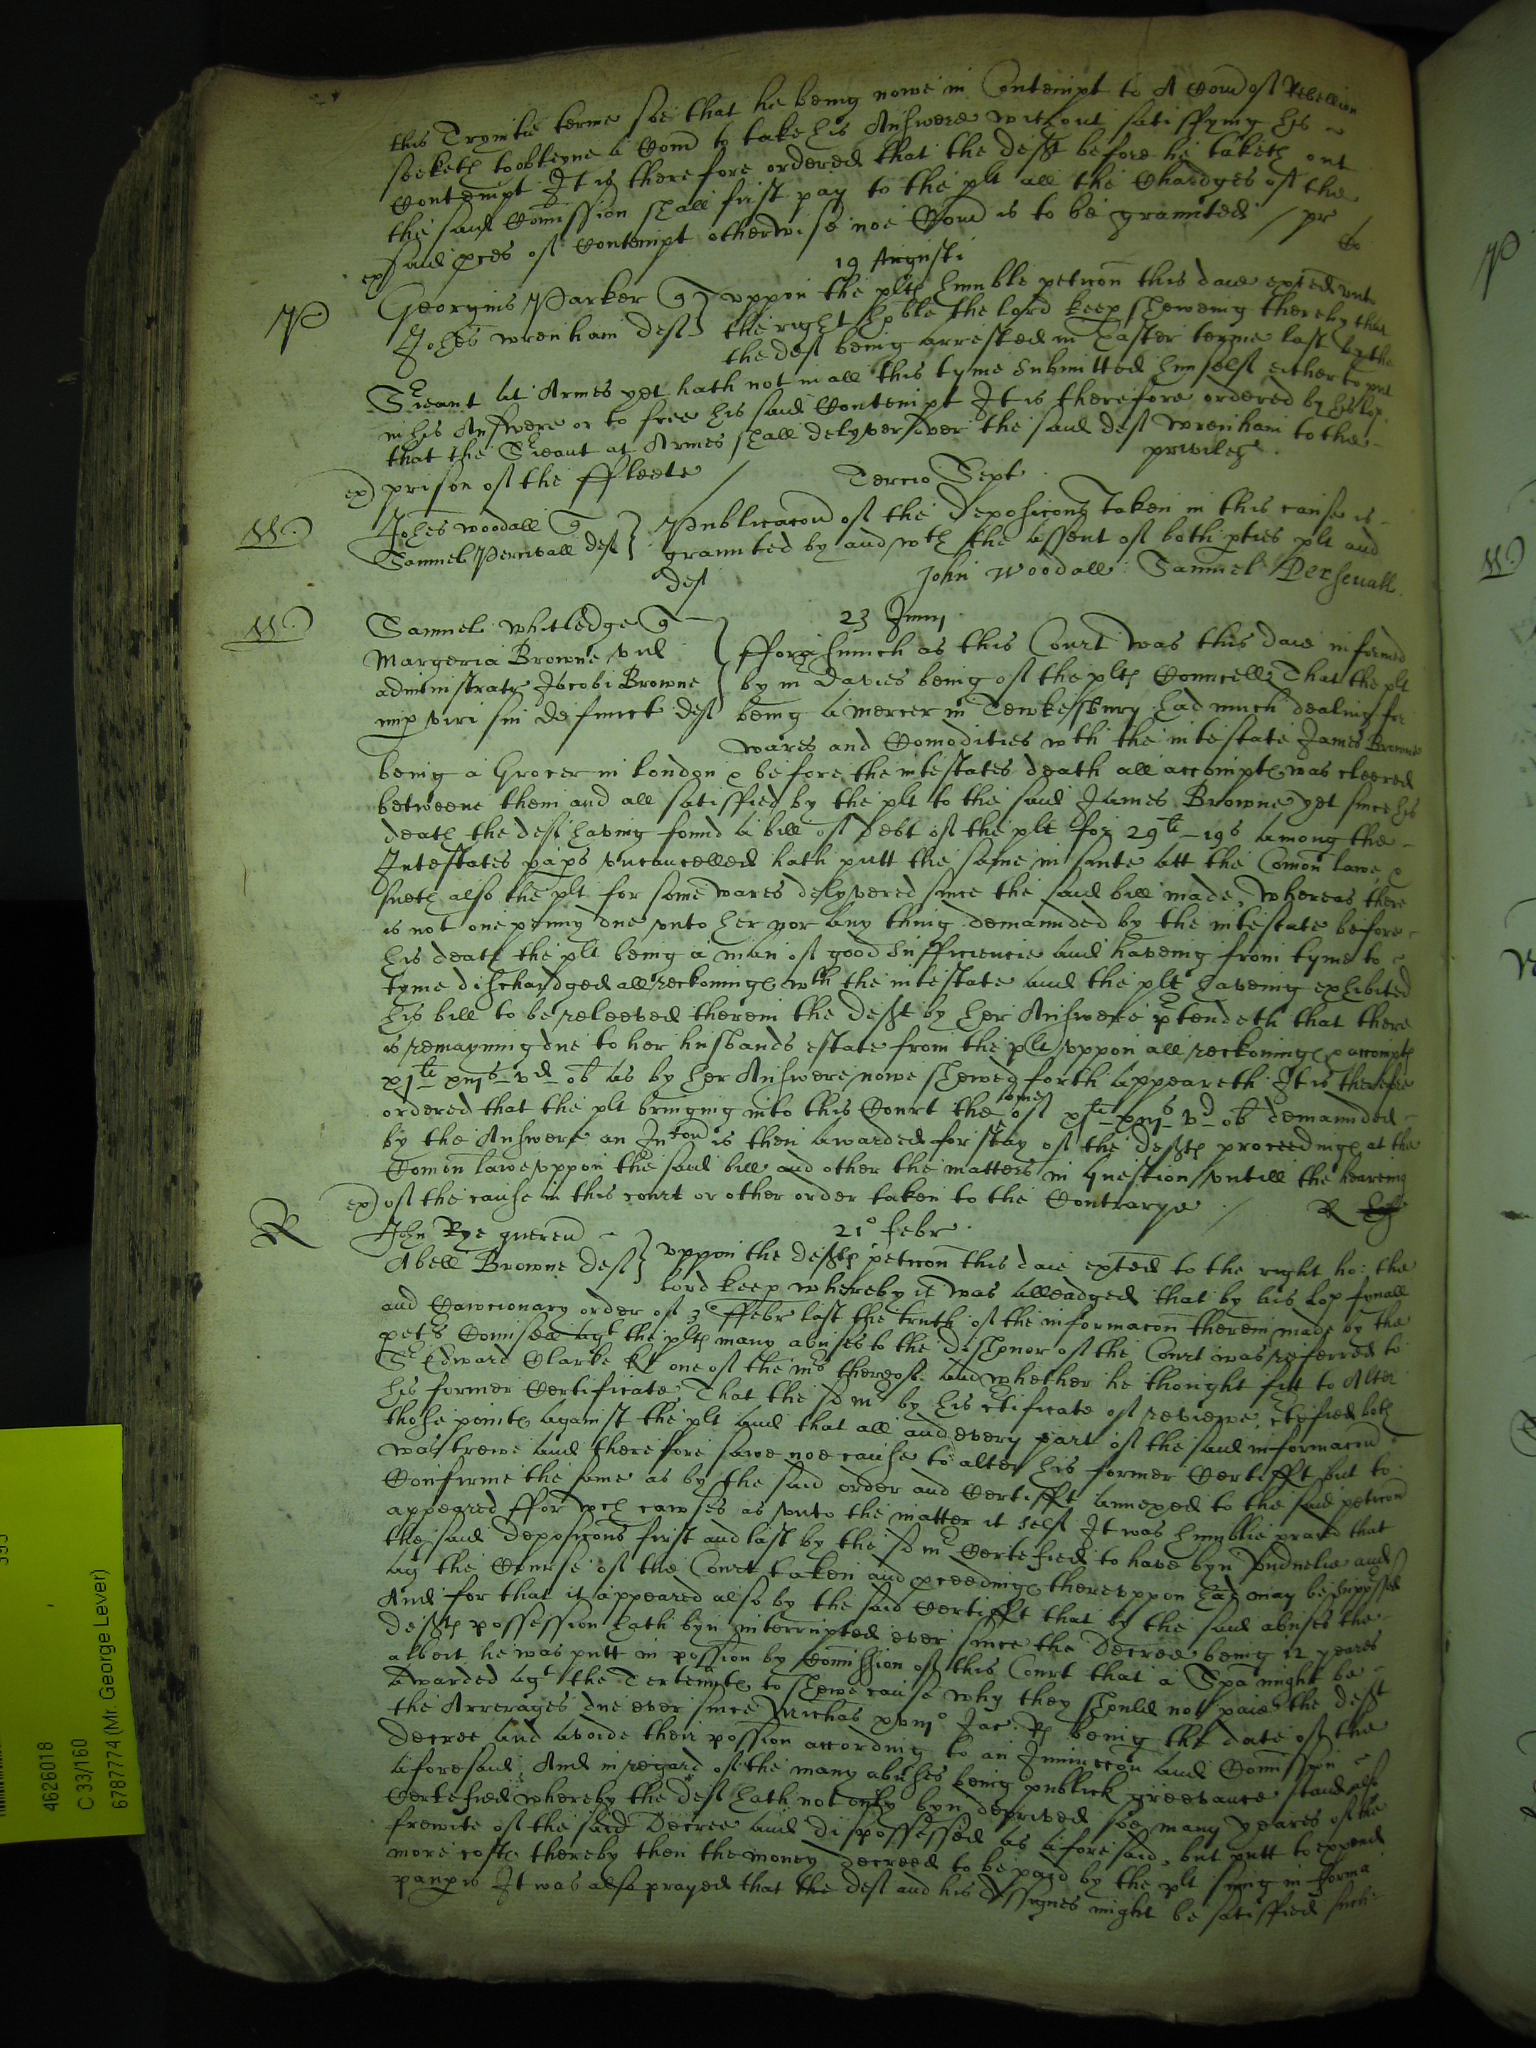 this Trynitie terme soe that he being nowe in Contempt to A Com̃ of Rebellion
seeketh to obteyne a Com̃ to take his Answere without satisfying his
Contempt It is therefore ordered that the deft before he taketh out
the said Com̃ission shall first pay to the plt all the Chardges of the
ex) said pces of Contempt otherwise noe Com̃ is to be graunted / pr
Co
19 Augusti
P Georgius Parker q } Vppon the plts humble peticon this daie exhted vnto
Johes Wrenham deft } the right hoble the lord keep shewing thereby that
the deft being arrested in Easter terme last by the
Sieant at Armes yet hath not in all this tyme submitted himself either to put
in his Answere or to free his said Contempt It is therefore ordered by his lop
that the Sieant at Armes shall delyver over the said deft Wrenham to the
ex) prison of the ffleete /
privileg
Tercio Sept
W Johes Woodall q } Publicacon of the deposicons Taken in this cause is
Samuel Percivall deft } graunted by and wth the assent of both pties plt and
deft
John Woodall : Samuel Perseuall.
23 Junij
W Samuel Whitledge q } fforasmuch as this Court was this daie informed
Margeria Browne vid } by mr Davies being of the plts Councell That the plt
administratr Jacobi Browne } being a mercer in Tewkesbury had much dealing for
nup viri sui defunct deft
wares and Comodities wth the intestate James Browne
being a Grocer in london & before the intestates death all accompts was cleered
betweene them and all satisfied by the plt to the said James Browne yet since his
death the deft having found a bill of debt of the plt for 29li – 19s among the
Intestates paps vncancelled hath putt the same in suite att the Comon lawe &
sueth also the plt for some wares delyvered since the said bill made, Whereas there
is not one penny due vnto her nor any thing demaunded by the intestate before
his death the plt being a man of good sufficiencie and haveing from tyme to
tyme dischardged all reckonings wth the intestate and the plt haveing exhibited
his bill to be releeved therein the deft by her Answere ptendeth that there
is remayning due to her husbands estate from the plt vppon all reckonings & accompts
xjli xvijs vd ob as by her Answere nowe shewed forth appeareth It is therefore
ordered that the plt bringing into this Court the some of xjli xvijs vd ob demaunded
by the Answere an Inion is then awarded for stay of the defts proceedings at the
Comon lawe vppon the said bill and other the matters in question vntill the hearing
ex) of the cause in this court or other order taken to the Contrarye / R
21o febr
R John Rye quereñ } vppon the defts peticon this daie exhted to the right ho: the
Abell Browne deft } lord keep whereby it was alleadged that by his lop fynall
and Cawcionary order of 3o ffebr last the truth of the informacon therein made by the
petrs Counsell agt the plts many abuses to the dishonor of the Court was referred to
Sr Edward Clarke kt one of the mrs thereof and whether he thought fitt to Alter
his former Certificate, That the sd mr by his ctificate of reviewe ctefied both
those points against the plt and that all and every part of the said informacon
was trewe and therefore sawe noe cause to alter his former Certifft but to
Confirme the same as by the said order and Certifft annexed to the said peticon
appeared ffor wch cawses as vnto the matter it self It was humblie praied that
the said deposicons first and last by the sd mr Certefied to have byn vnduelie and
agt the Course of the Court taken and pceedings therevppon had may be suppssed
And for that it appeared also by the said Certifft that by the said abuses the
defts possession hath byn interrupted ever since the decree being 12 yeares
albeit he was putt in possion by Comission of this Court that a Spa might be
Awarded agt the Tertenñts to shewe cause why they should not paie the deft
the Arrerages due ever since Michas xviijo Jac: R being the date of the
decree and avoide their possion according to an Iniunccon and Comission
aforesaid, And in regard of the many abuses being publick greevance stand also
Certefied whereby the deft hath not only byn deprived soe many yeares of the
frewite of the said decree and dispossessed as aforesaid, but putt to expend
more costs thereby then the money decreed to be paid by the plt suing in forma
paupis It was also prayed that the deft and his Assignes might be satisfied such
4626018
C 33/160
6787774 (Mr George Lever)